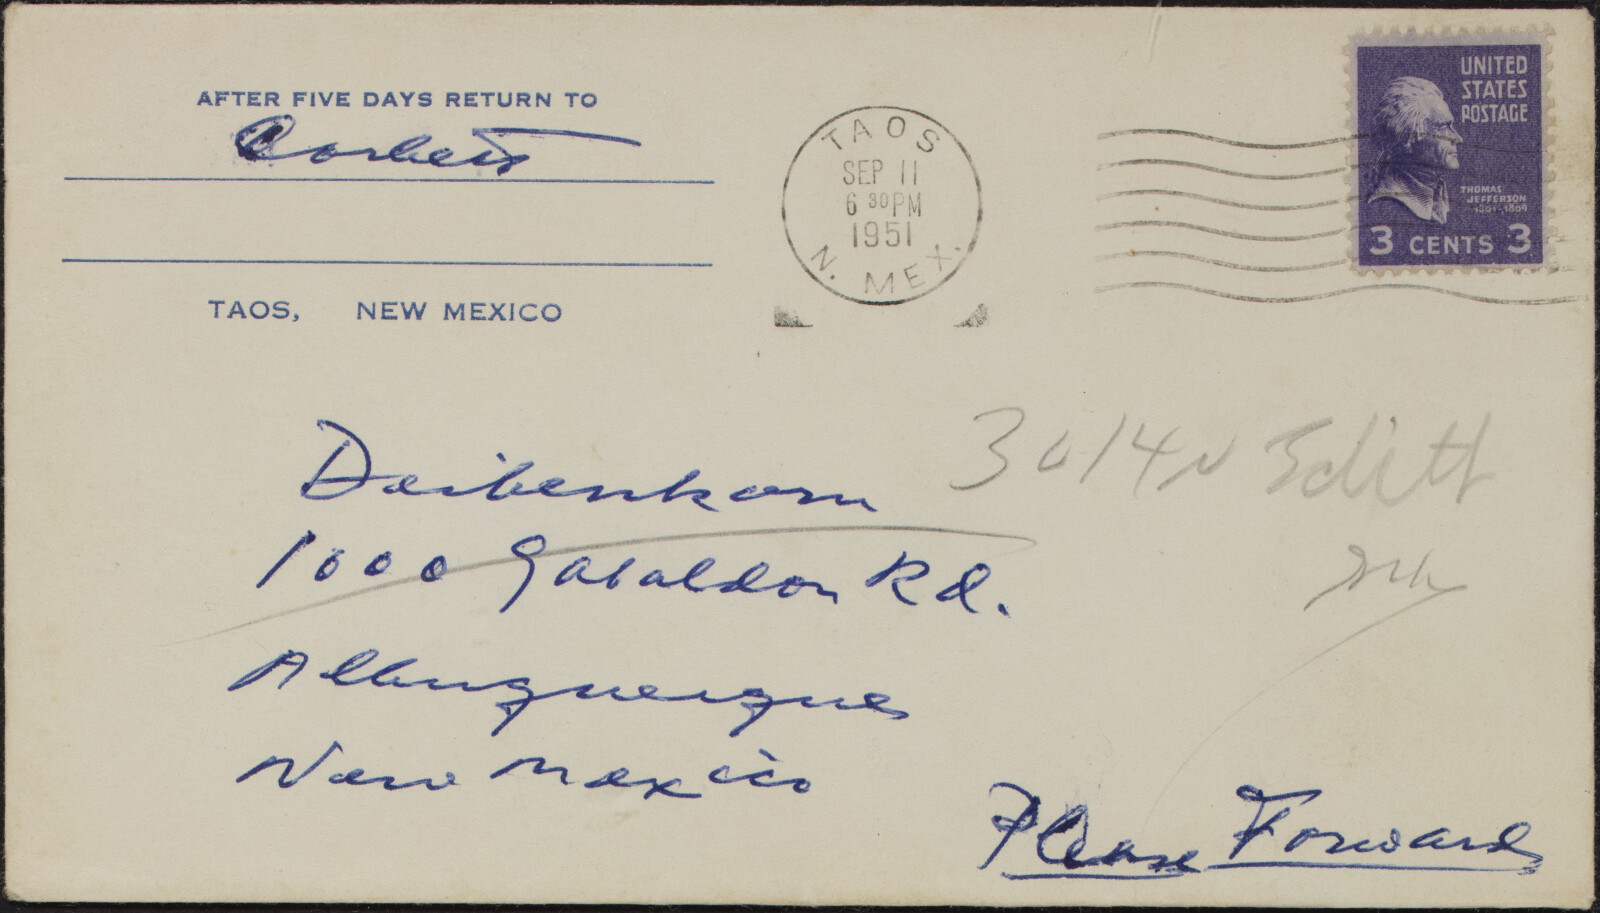 AFTER FIVE DAYS RETURN TO
Corbett
TAOS, NEW MEXICO
TAOS
SEP 11
6 30 PM
1951
N. MEX.
UNITED
STATES
POSTAGE
THOMAS
JEFFERSON
1801-1809
3 CENTS 3
Deibenkorn
3014 N Edith
1000 Gabaldon Rd.
Albuquerque
New Mexico
Please Forward